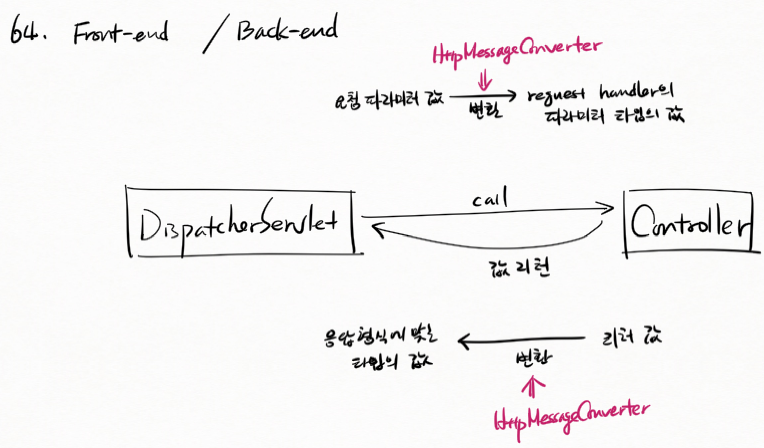 64. Front-end / Back-end
HttpMessageConverter
요청 파라미터 값 변환 request handler의
파라미터 타입의 값
DispatcherServlet
call
Controller
값 리턴
응답형식에 맞는
타입의 값
변환
리턴 값
HttpMessageConverter